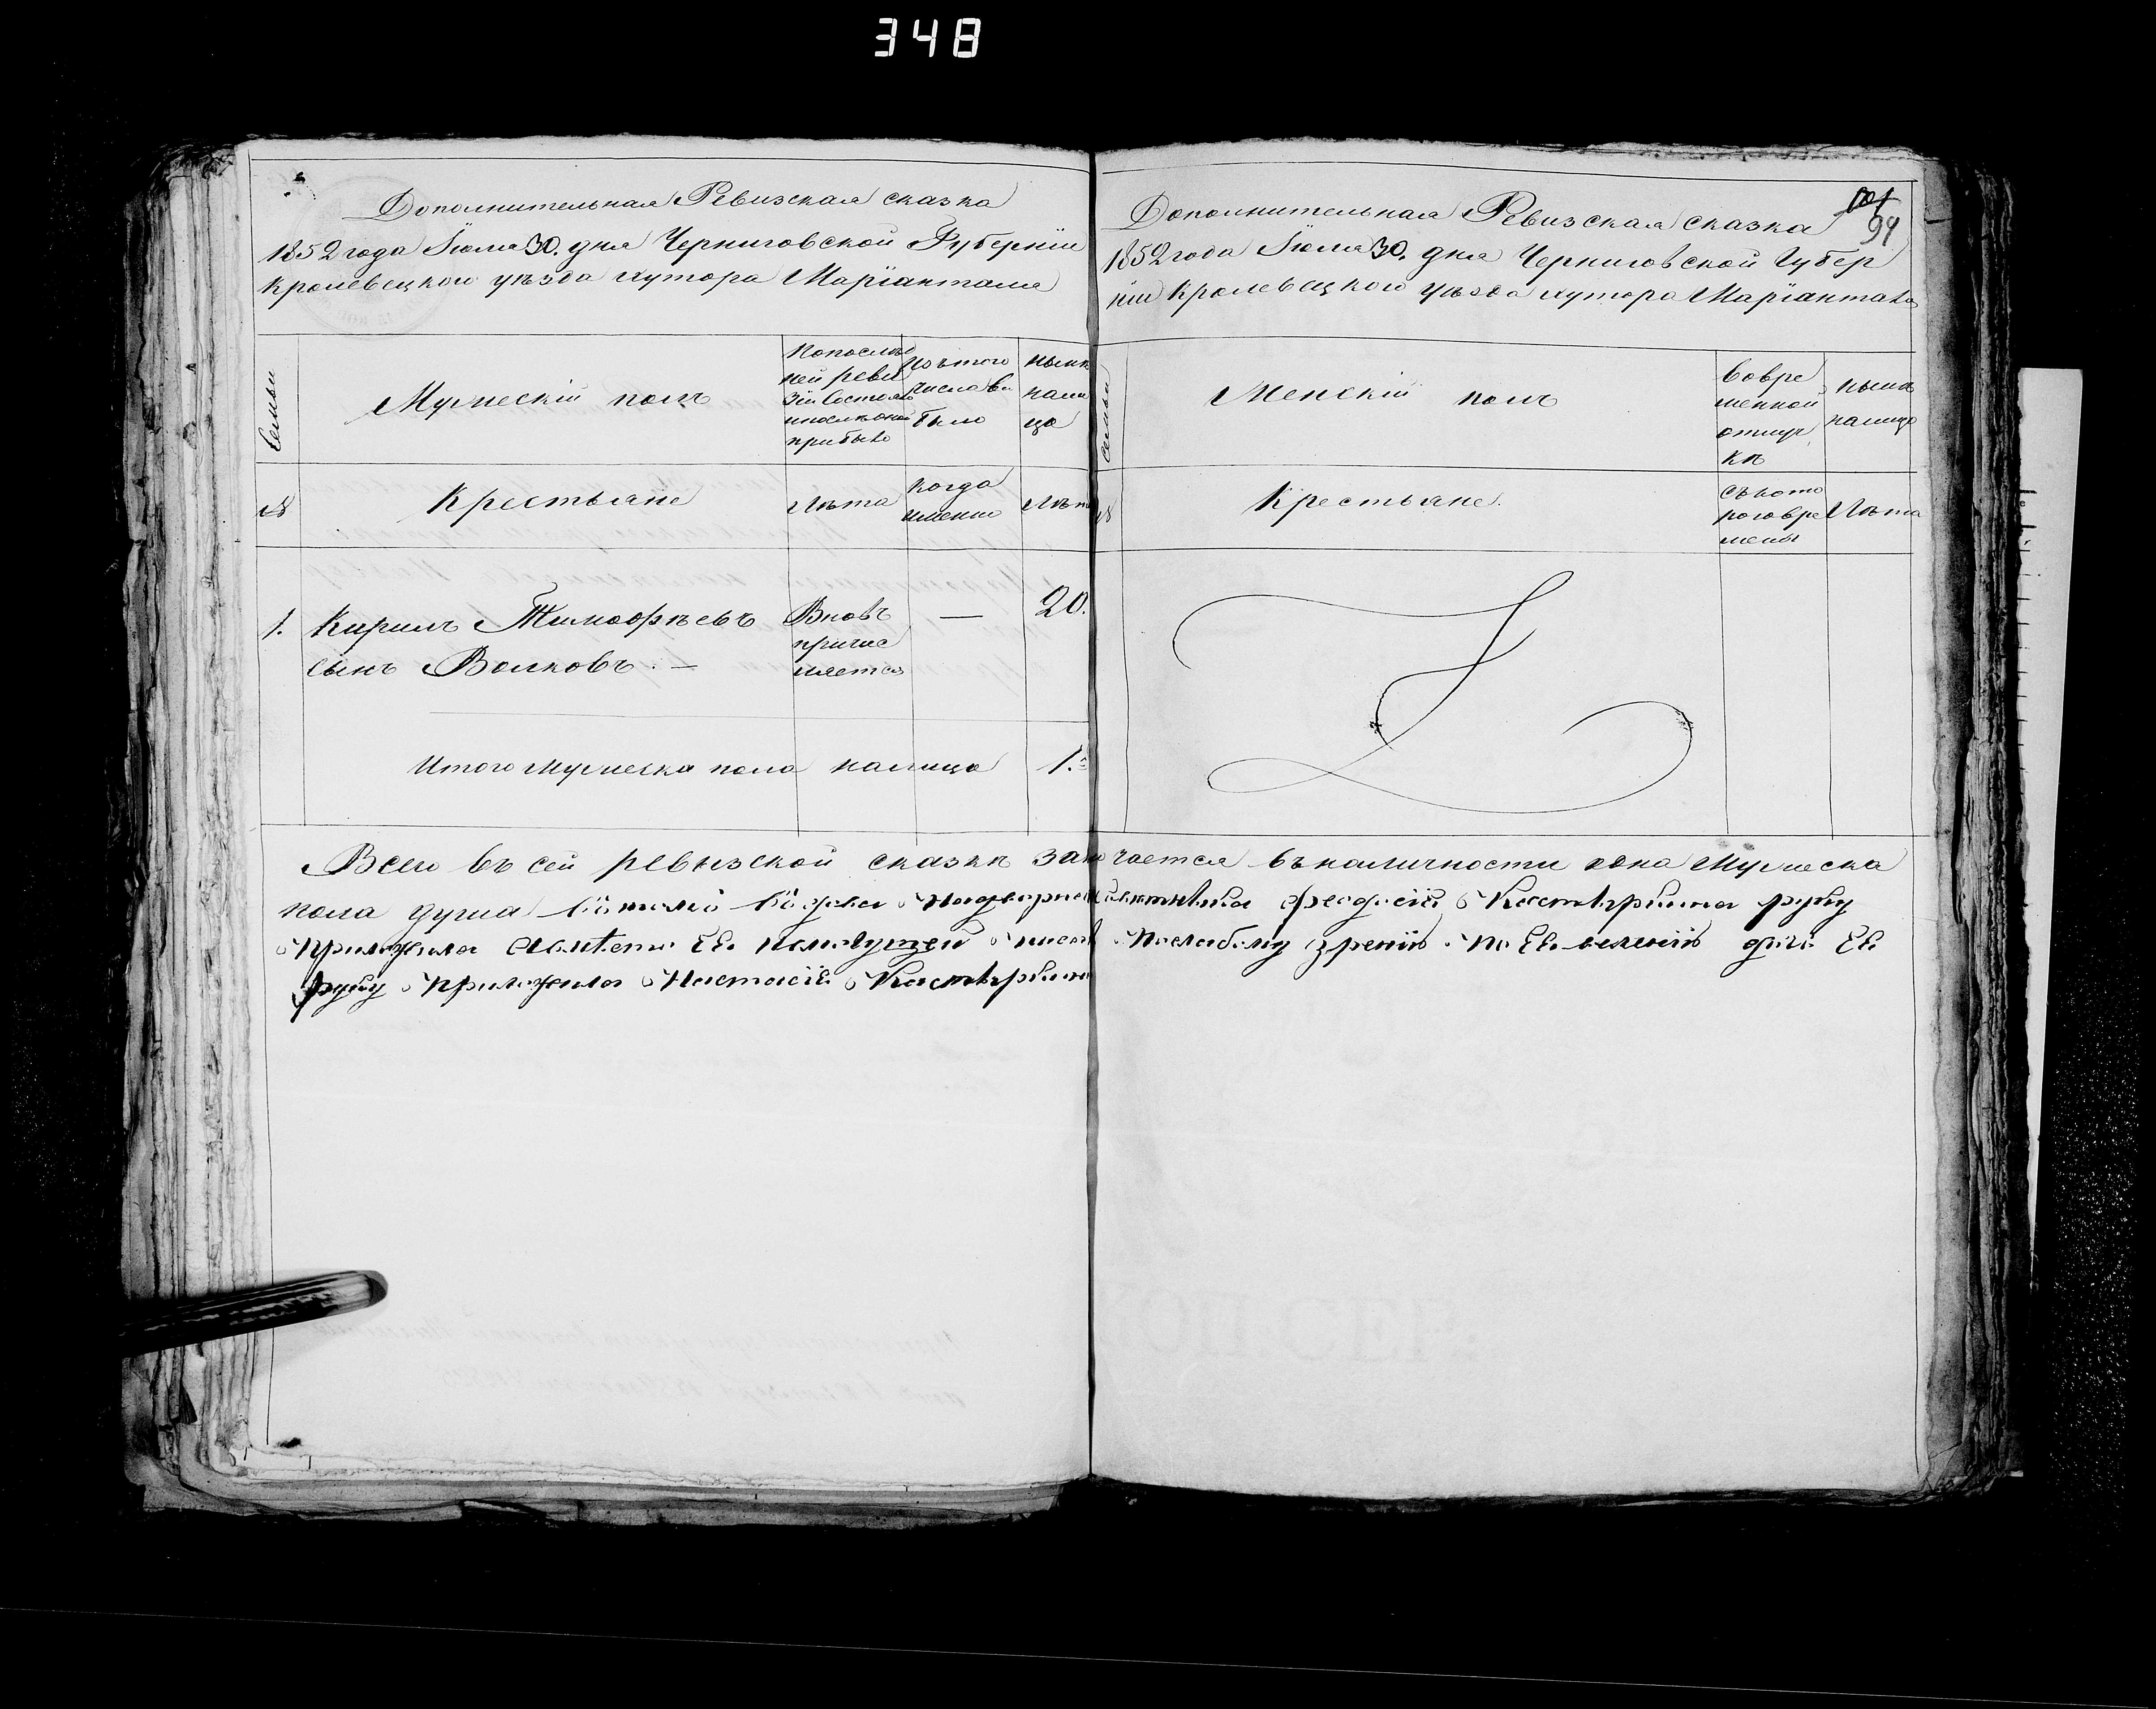 348
Дополнительная Ревизская сказка
1852 года Іюля 30. дня Черниговской Губерніи
Кролевецкого уѣзда хутора Маріянталя
Семьи
Мужескій полъ
По послѣд
ней реви
зіи состояло
и после оной
прибыло
Изъ того
числа вы
было
Нынѣ
нали
цо
№
Крестьяне
Лѣта
Когда
именно
Лѣта
1. Кирилъ Тимофѣевъ
сынъ Волковъ. —
Вновь
причис
ляется
—
20.
Итого мужеска пола налицо 1.
101
94
Дополнительная Ревизская сказка
1852 года Іюля 30. дня Черниговской Губер
ніи Кролевецкого уѣзда хутора Маріянталя
Семьи
Женскій полъ
Во вре
менной
отлуч
кѣ
Нынѣ
налицо
№
Крестьяне.
Съ кото
рого вре
мени
Лѣта
Всего въ сей ревизской сказкѣ значается въ наличности одна Мужеска
пола душа къ томо вдова Надворная советница феодосія Кастырkina руку
приложила а вместо Ее по слабому зрению по Ее велению дочь Ее
руку приложила Настасія